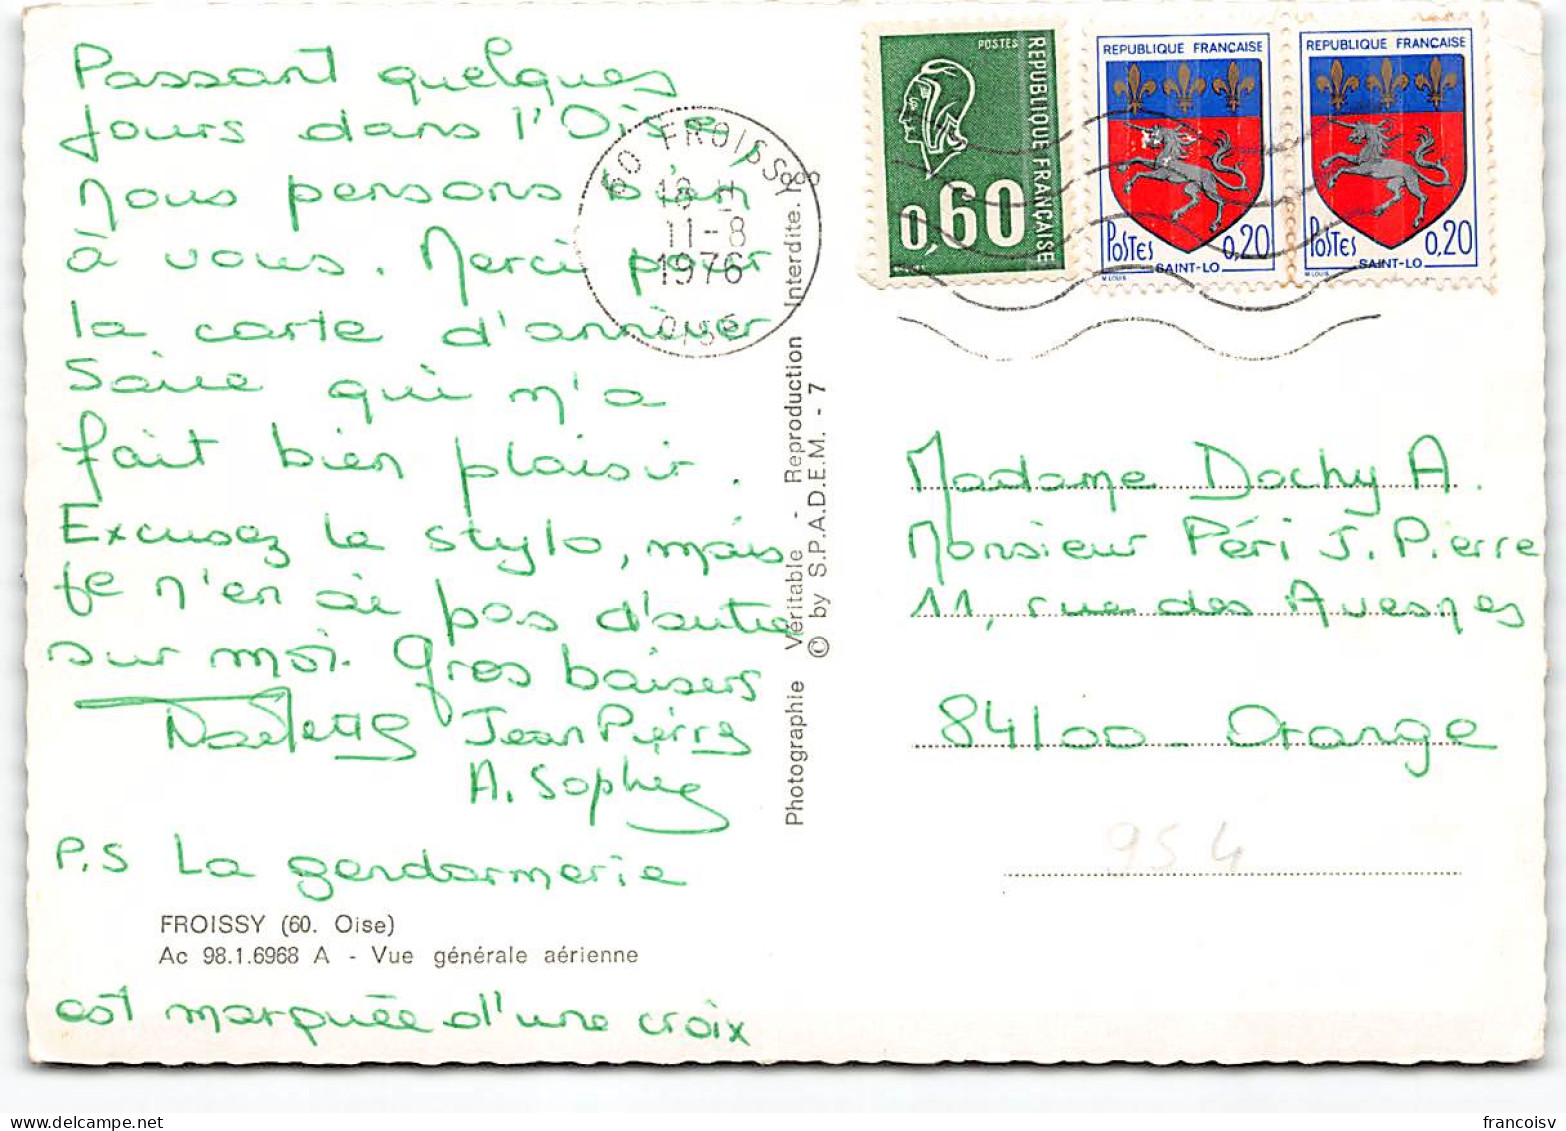 Passant quelques
jours dans l'Oise,
nous pensons bien
à vous. Merci pour
la carte d'anniver
saire qui m'a
fait bien plaisir.
Excusez le stylo, mais
je n'en ai pas d'autre
sur moi. Gros baisers
Jean Pierre
A. Sophie
P.S La gendarmerie
FROISSY (60. Oise)
Ac 98.1.6968 A - Vue générale aérienne
est marquée d'une croix
Photographie Véritable - Reproduction Interdite.
© by S.P.A.D.E.M. - 7
60 FROISSY
18 H
11-8
1976
OISE
POSTES
REPUBLIQUE FRANÇAISE
0,60
REPUBLIQUE FRANÇAISE
POSTES 0,20
SAINT-LO
M. LOUIS
REPUBLIQUE FRANÇAISE
POSTES 0,20
SAINT-LO
M. LOUIS
Madame Dochy A.
Monsieur Péri J. Pierre
11, rue des Avesnes
84100 - Orange
954
francoisv